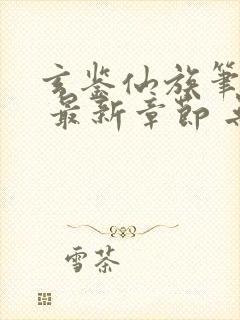 玄鉴仙族笔
最新章节
雪茶